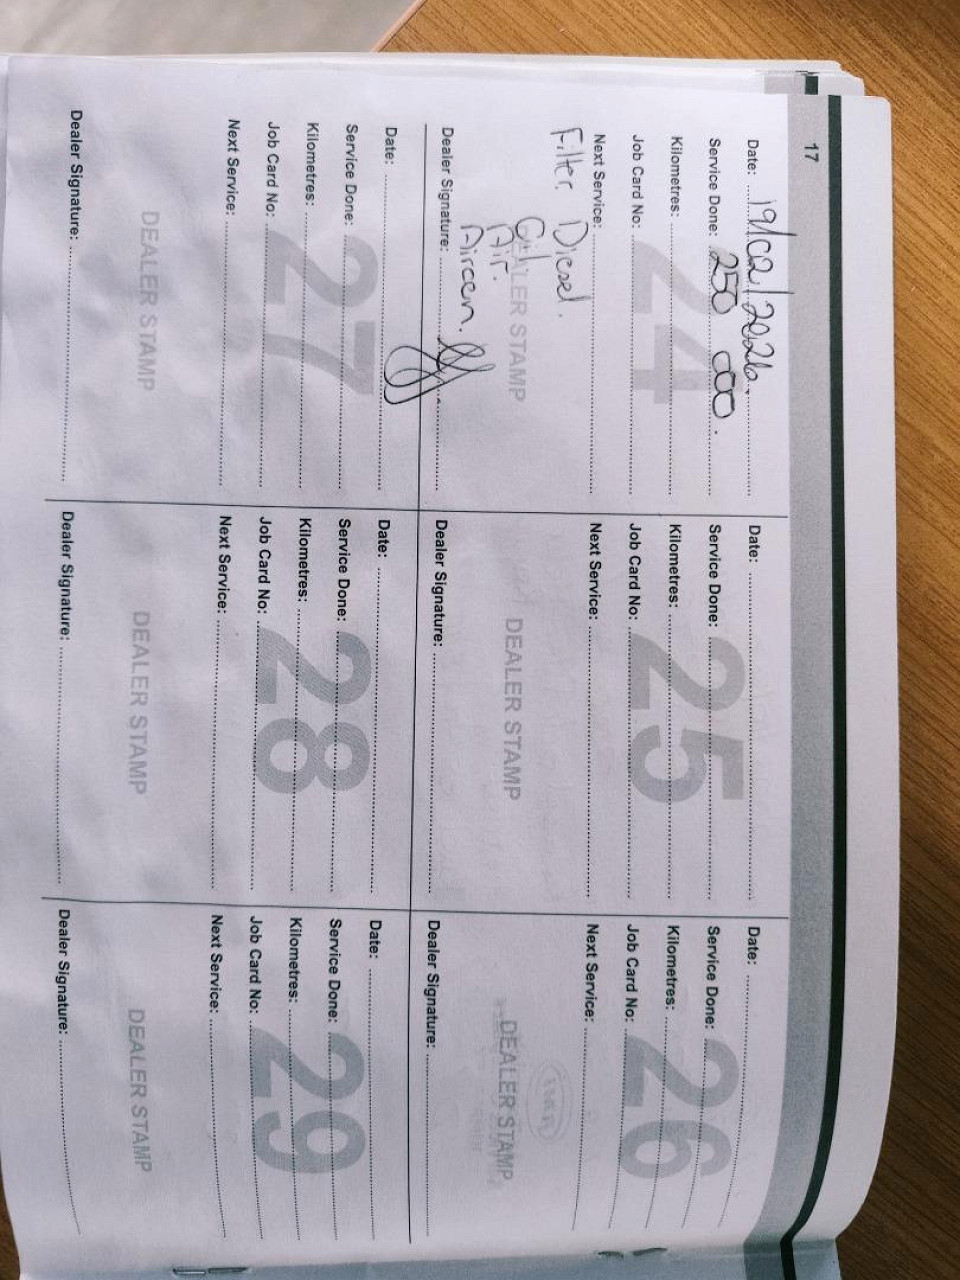 17
Date: 19/02/2026.
Service Done: 250 000.
Kilometres:
Job Card No:
Next Service:
24
Filter. Diesel.
Oil
Air.
Aircon.
DEALER STAMP
Dealer Signature:
Date:
Service Done:
Kilometres:
Job Card No:
Next Service:
25
DEALER STAMP
Dealer Signature:
Date:
Service Done:
Kilometres:
Job Card No:
Next Service:
26
DEALER STAMP
Dealer Signature:
Date:
Service Done:
Kilometres:
Job Card No:
Next Service:
27
DEALER STAMP
Dealer Signature:
Date:
Service Done:
Kilometres:
Job Card No:
Next Service:
28
DEALER STAMP
Dealer Signature:
Date:
Service Done:
Kilometres:
Job Card No:
Next Service:
29
DEALER STAMP
Dealer Signature: